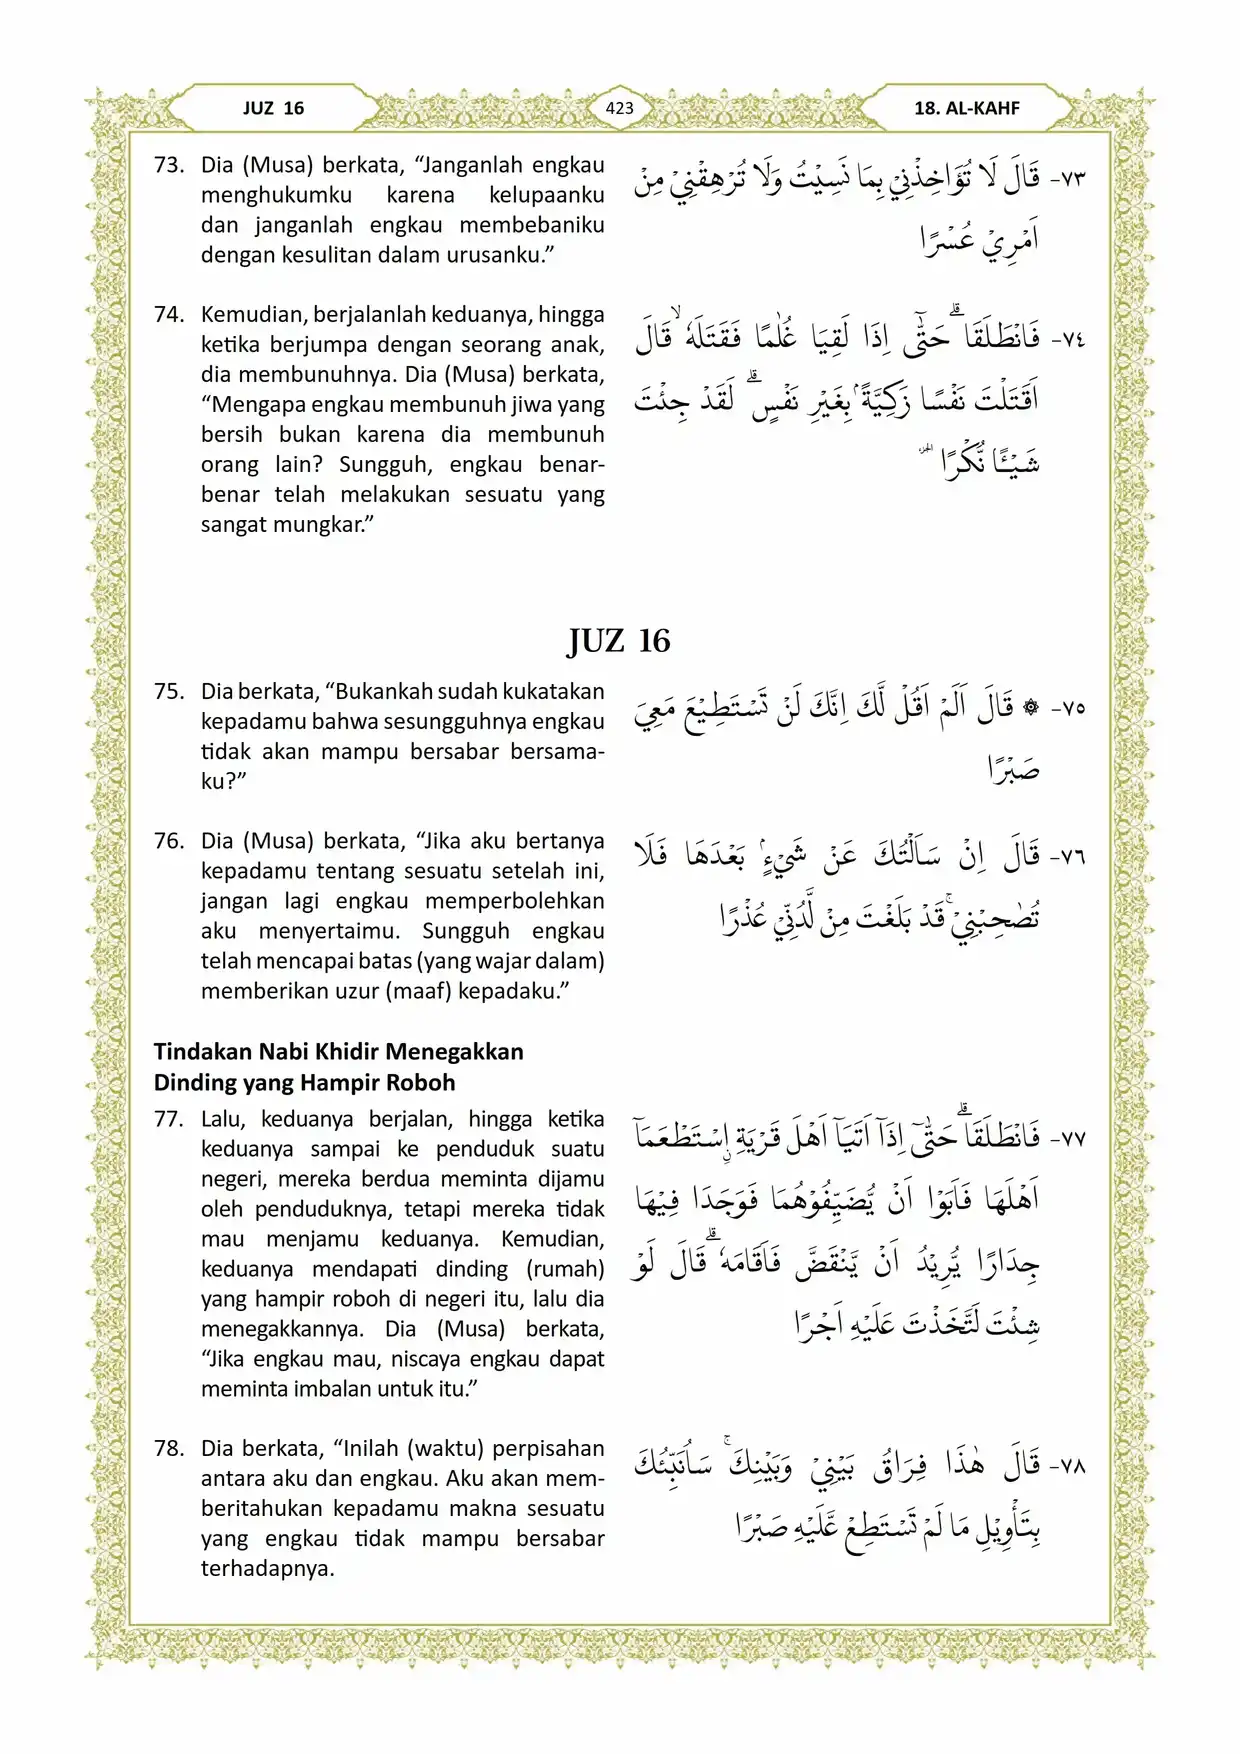 JUZ 16
423
18. AL-KAHF
73. Dia (Musa) berkata, “Janganlah engkau
menghukumku karena kelupaanku
dan janganlah engkau membebaniku
dengan kesulitan dalam urusanku.”
٧٣- قَالَ لَا تُؤَاخِذْنِيْ بِمَا نَسِيْتُ وَلَا تُرْهِقْنِيْ مِنْ
اَمْرِيْ عُسْرًا
74. Kemudian, berjalanlah keduanya, hingga
ketika berjumpa dengan seorang anak,
dia membunuhnya. Dia (Musa) berkata,
“Mengapa engkau membunuh jiwa yang
bersih bukan karena dia membunuh
orang lain? Sungguh, engkau benar-
benar telah melakukan sesuatu yang
sangat mungkar.”
٧٤- فَانْطَلَقَاۗ حَتّٰٓى اِذَا لَقِيَا غُلٰمًا فَقَتَلَهٗ ۙقَالَ
اَقَتَلْتَ نَفْسًا زَكِيَّةً ۢبِغَيْرِ نَفْسٍۗ لَقَدْ جِئْتَ
شَيْـًٔا نُّكْرًا
JUZ 16
75. Dia berkata, “Bukankah sudah kukatakan
kepadamu bahwa sesungguhnya engkau
tidak akan mampu bersabar bersama-
ku?”
٧٥- ۞ قَالَ اَلَمْ اَقُلْ لَّكَ اِنَّكَ لَنْ تَسْتَطِيْعَ مَعِيَ
صَبْرًا
76. Dia (Musa) berkata, “Jika aku bertanya
kepadamu tentang sesuatu setelah ini,
jangan lagi engkau memperbolehkan
aku menyertaimu. Sungguh engkau
telah mencapai batas (yang wajar dalam)
memberikan uzur (maaf) kepadaku.”
٧٦- قَالَ اِنْ سَاَلْتُكَ عَنْ شَيْءٍ ۢ بَعْدَهَا فَلَا
تُصٰحِبْنِيْۚ قَدْ بَلَغْتَ مِنْ لَّدُنِّيْ عُذْرًا
Tindakan Nabi Khidir Menegakkan
Dinding yang Hampir Roboh
77. Lalu, keduanya berjalan, hingga ketika
keduanya sampai ke penduduk suatu
negeri, mereka berdua meminta dijamu
oleh penduduknya, tetapi mereka tidak
mau menjamu keduanya. Kemudian,
keduanya mendapati dinding (rumah)
yang hampir roboh di negeri itu, lalu dia
menegakkannya. Dia (Musa) berkata,
“Jika engkau mau, niscaya engkau dapat
meminta imbalan untuk itu.”
٧٧- فَانْطَلَقَاۗ حَتّٰىٓ اِذَآ اَتَيَآ اَهْلَ قَرْيَةِ ࣙاسْتَطْعَمَآ
اَهْلَهَا فَاَبَوْا اَنْ يُّضَيِّفُوْهُمَا فَوَجَدَا فِيْهَا
جِدَارًا يُّرِيْدُ اَنْ يَّنْقَضَّ فَاَقَامَهٗ ۗقَالَ لَوْ
شِئْتَ لَتَّخَذْتَ عَلَيْهِ اَجْرًا
78. Dia berkata, “Inilah (waktu) perpisahan
antara aku dan engkau. Aku akan mem-
beritahukan kepadamu makna sesuatu
yang engkau tidak mampu bersabar
terhadapnya.
٧٨- قَالَ هٰذَا فِرَاقُ بَيْنِيْ وَبَيْنِكَۚ سَاُنَبِّئُكَ
بِتَأْوِيْلِ مَا لَمْ تَسْتَطِعْ عَّلَيْهِ صَبْرًا